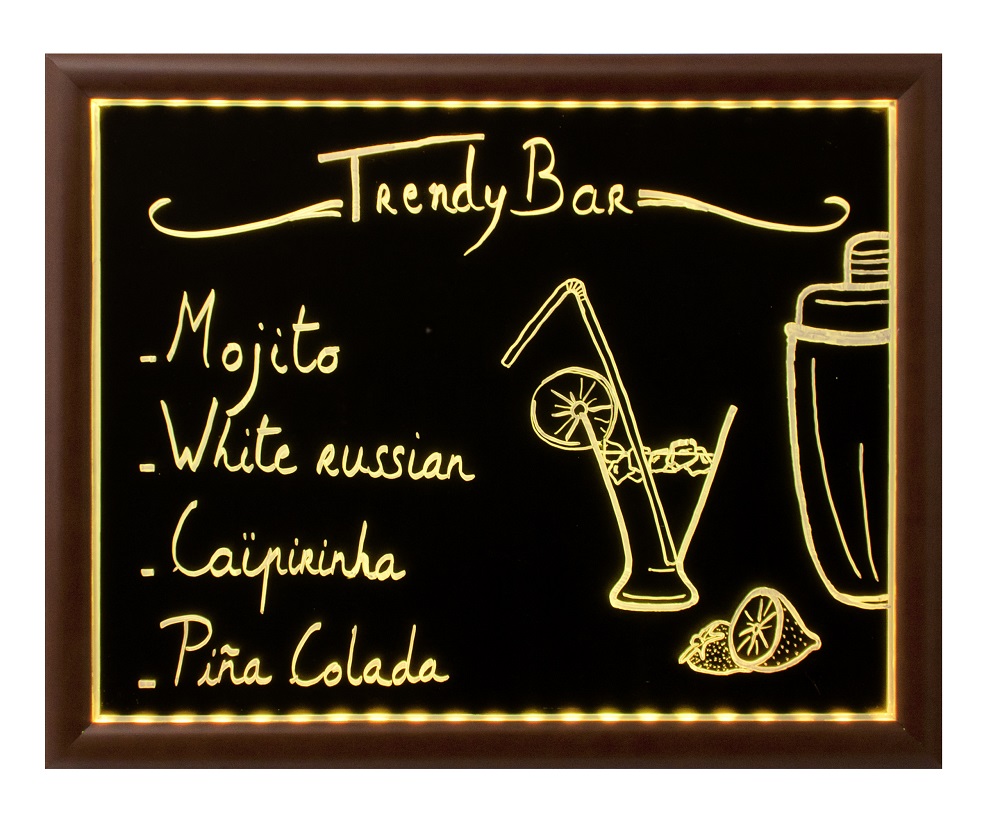 Trendy Bar
- Mojito
- White russian
- Caïpirinha
- Piña Colada